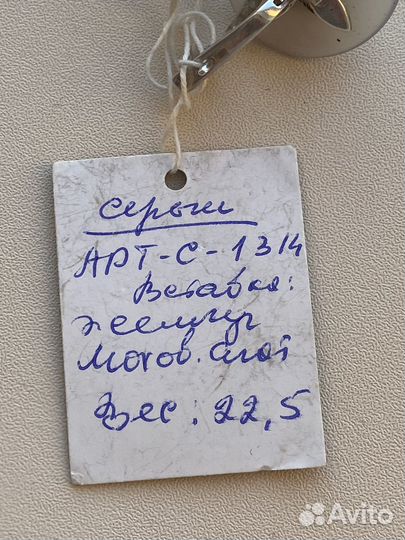 серьги
АРТ-С-1314
Вставка:
жемчуг
Мохов. агат
Вес: 22,5
Avito